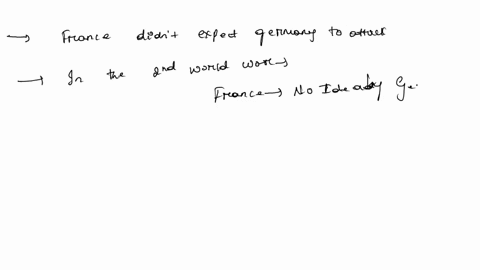 → France didn't expect germany to attack
→ In the 2nd world war →
France → No Idea by Ge.